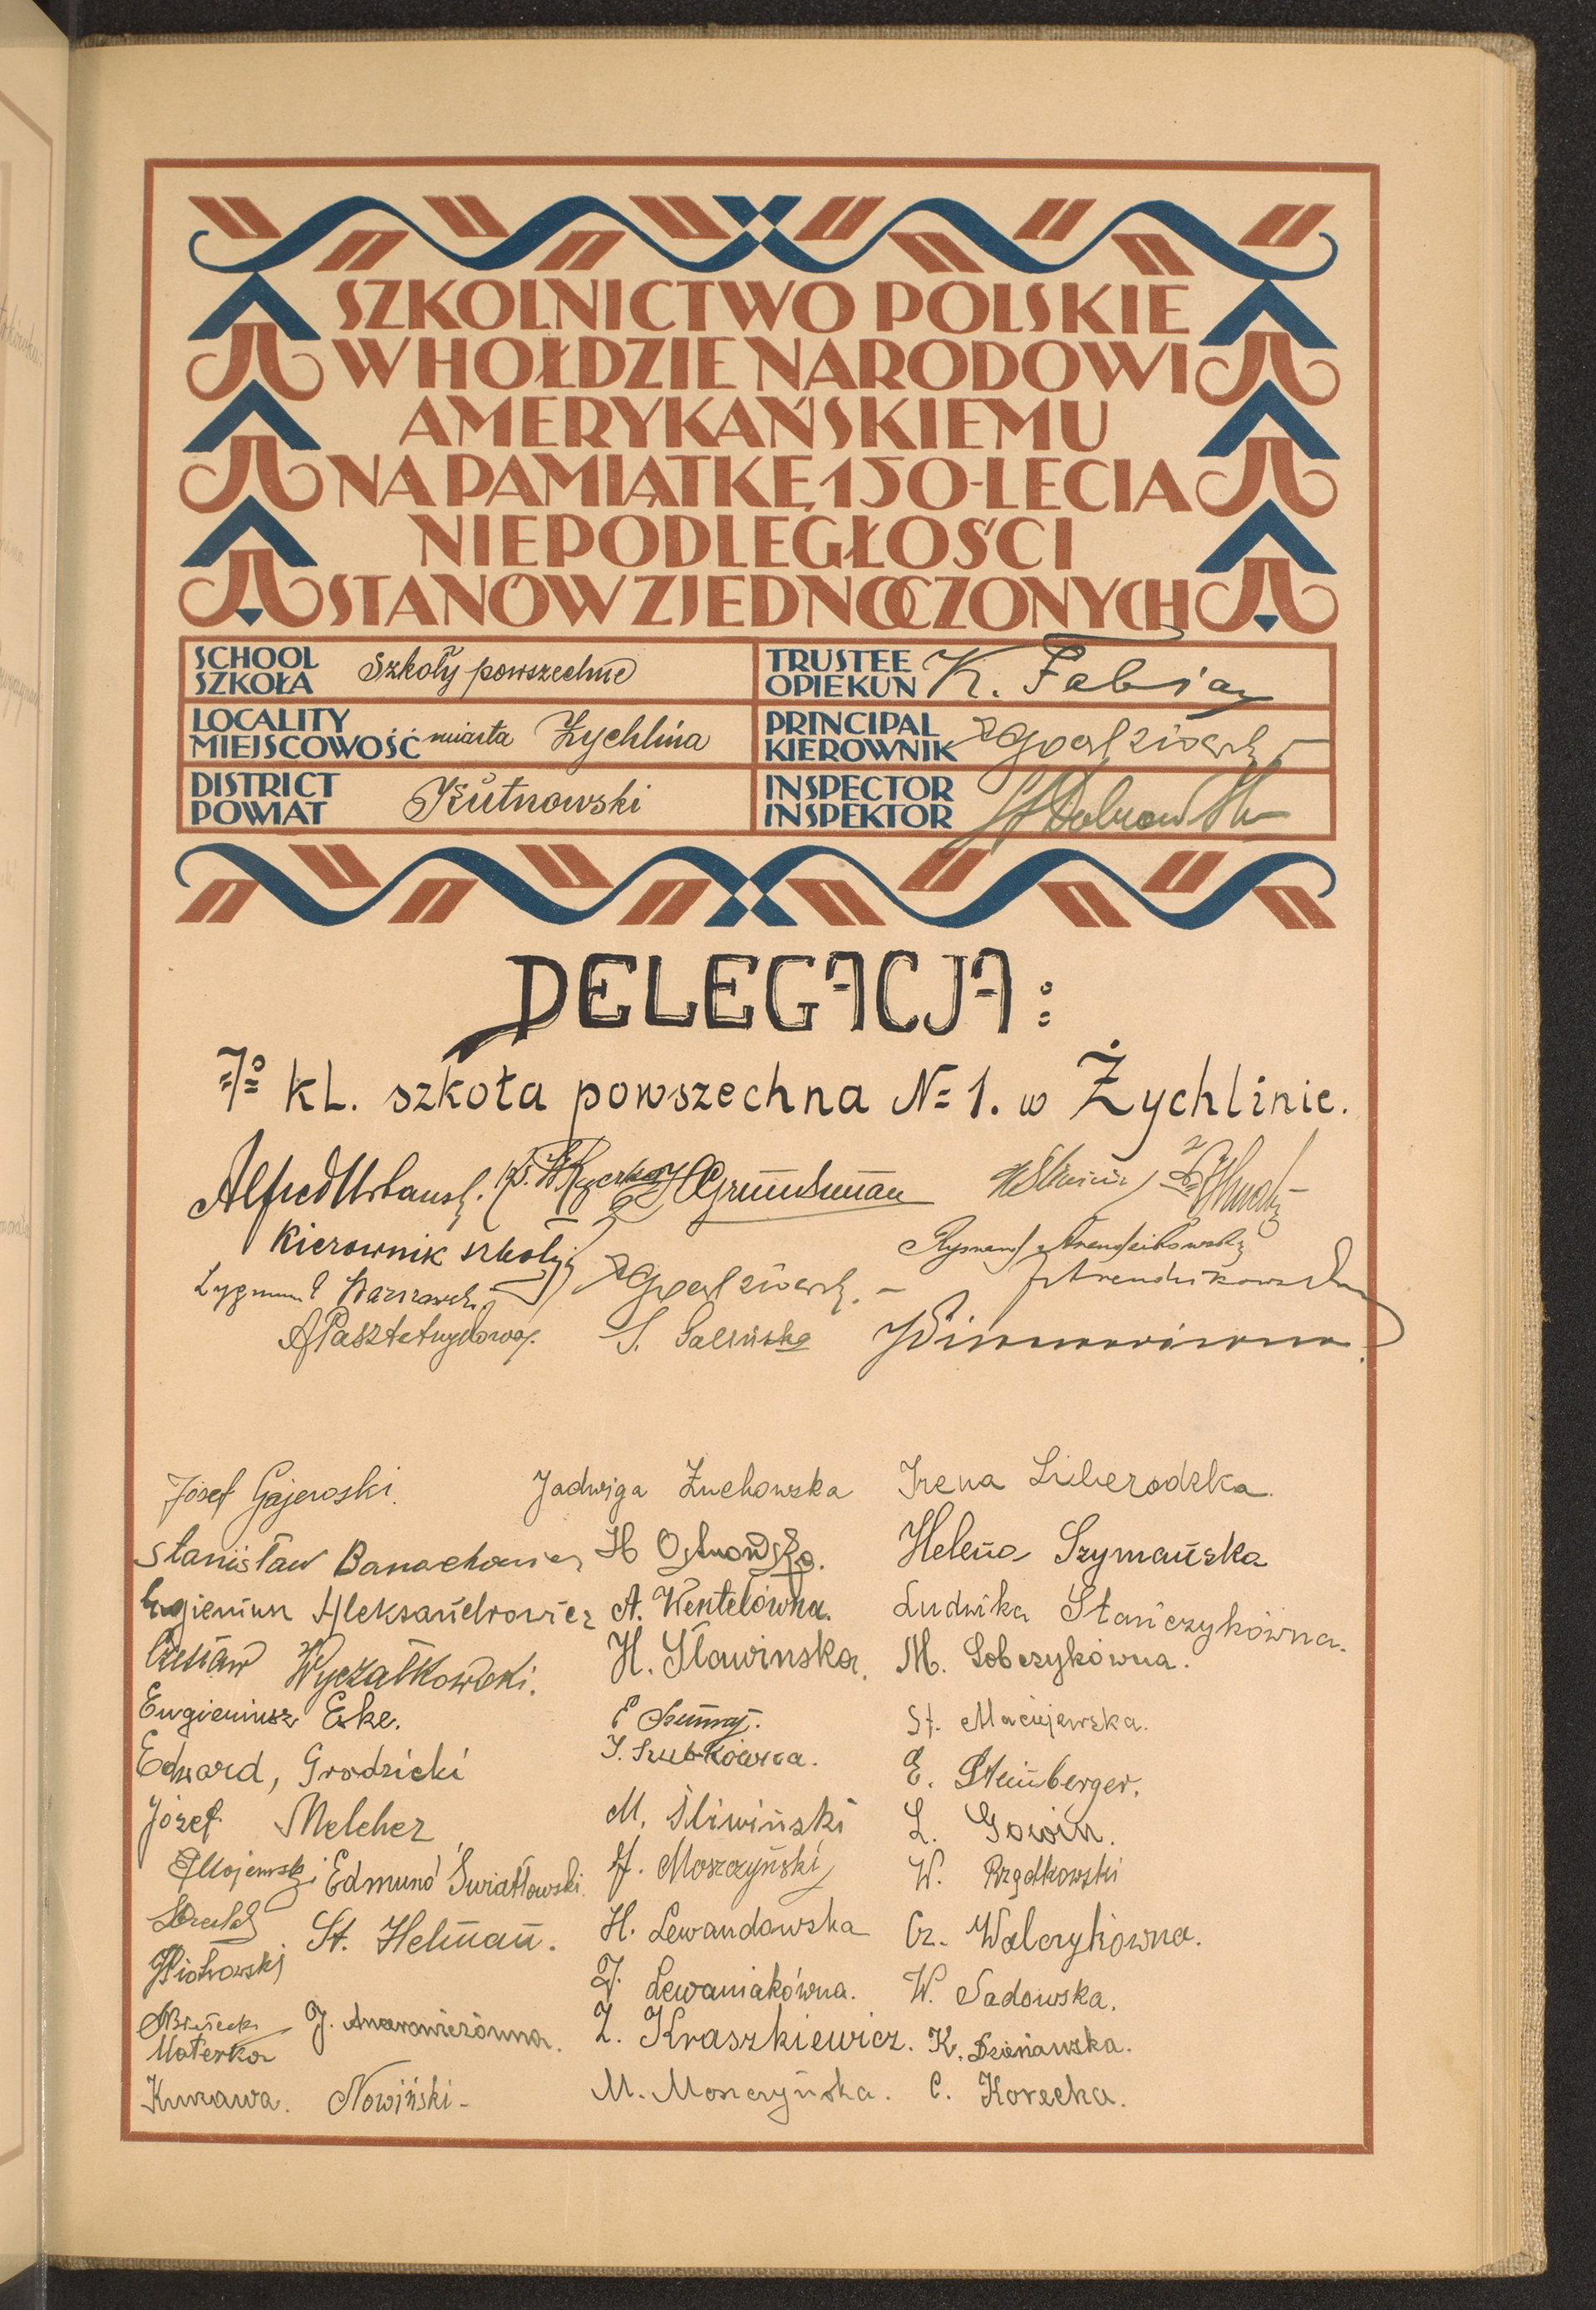 SZKOLNICTWO POLSKIE
W HOŁDZIE NARODOWI
AMERYKAŃSKIEMU
NA PAMIĄTKĘ 150-LECIA
NIEPODLEGŁOŚCI
STANÓW ZJEDNOCZONYCH
SCHOOL
SZKOŁA
Szkoły powszechne
TRUSTEE
OPIEKUN
K. Fabian
LOCALITY
MIEJSCOWOŚĆ
miasta Żychlina
PRINCIPAL
KIEROWNIK
DISTRICT
POWIAT
Kutnowski
INSPECTOR
INSPEKTOR
DELEGACJA:
7º kl. szkoła powszechna N=1. w Żychlinie.
Alfred Urbański.
Kierownik szkoły
Zygmunt Warszawski
S. Galińska
Józef Gajewski. Jadwiga Żuchowska Irena
Stanisław H Ostrowska. Helena Szymańska
Eugieniusz Aleksandrowicz A. Wentelówna. Ludwika Stańczykówna.
Czesław Wyczałkowski. H. Sławinska. M. Sobczykówna.
Eugieniusz Eske. St. Maciejewska.
Edward, Grodzicki E. Steinberger.
Józef Melcher M. Śliwiński L. Gowin.
Majewski Edmund Światłowski. Moszczyński W. Rządkowski
St. Helman. H. Lewandowska Cz. Walczykówna.
Piotrowski Lewaniakówna. W. Sadowska.
Materka Z. Kraszkiewicz. K.
Kurzawa. Nowiński. M. Moszczyńska. C. Korzecka.